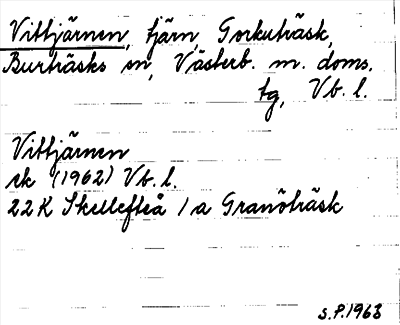 Vittjärnen, tjärn, Gorkuträsk,
Burträsks sn, Västerb. m. doms.
tg, Vb. l.
Vittjärnen
rk (1962) Vb. l.
22K Skellefteå 1a Granöträsk
S.P. 1963